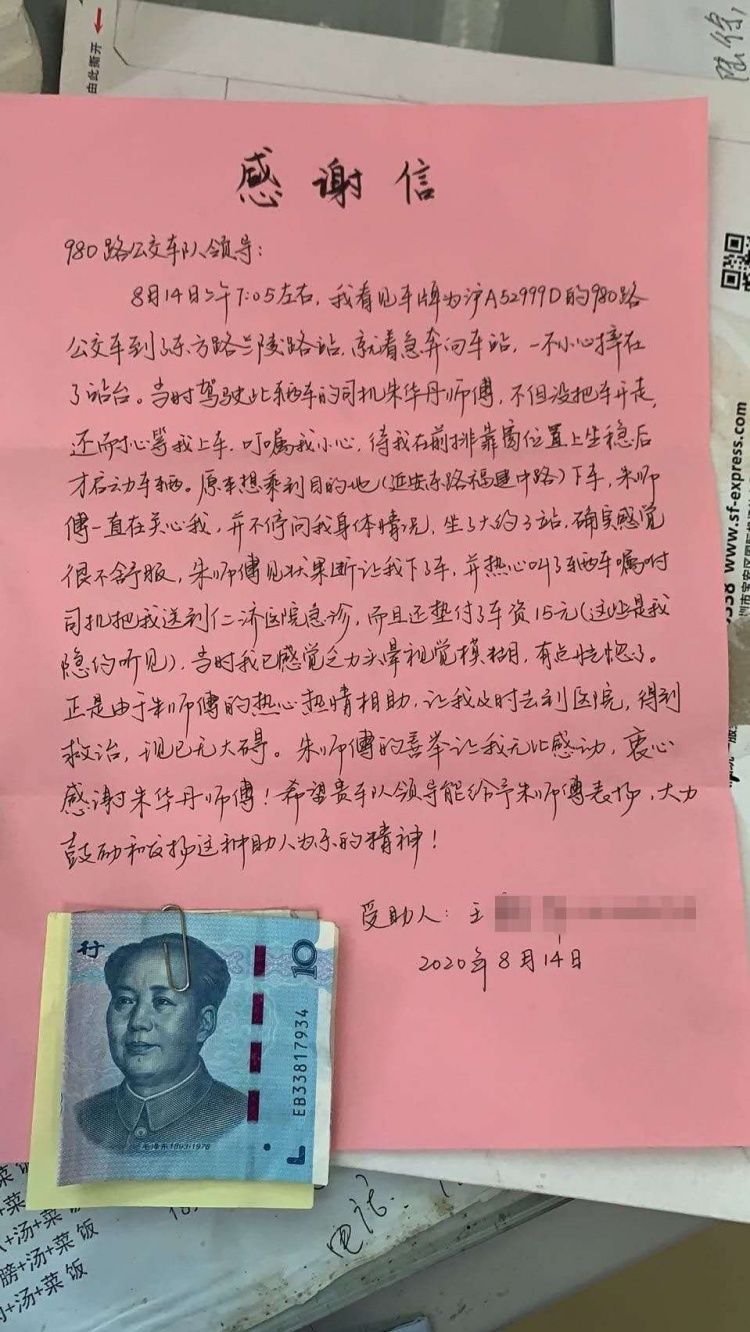 由此撕开
感谢信
980路公交车队领导:
8月14日上午7:05左右,我看见车牌为沪A52999D的980路
公交车到了东方路兰陵路站,就着急奔向车站,一不小心摔在
了站台。当时驾驶此辆车的司机朱华丹师傅,不但没把车开走,
还耐心等我上车,叮嘱我小心,待我在前排靠窗位置上坐稳后
才启动车辆。原本想乘到目的地(延安东路福建中路)下车,朱师
傅一直在关心我,并不停问我身体情况,坐了大约3站,确实感觉
很不舒服,朱师傅见状果断让我下了车,并热心叫了辆车嘱咐
司机把我送到仁济医院急诊,而且还垫付了车资15元(这些是我
隐约听见),当时我已感觉乏力头晕视觉模糊,有点恍惚了。
正是由于朱师傅的热心热情相助,让我及时去到医院,得到
救治,现已无大碍。朱师傅的善举让我无比感动,衷心
感谢朱华丹师傅!希望贵车队领导能给予朱师傅表扬,大力
鼓励和发扬这种助人为乐的精神!
受助人:王
2020年8月14日
行
10
EB33817934
毛泽东1893-1976
338 www.sf-express.com
电话:
+汤+菜饭
膀+汤+菜饭
+汤+菜饭